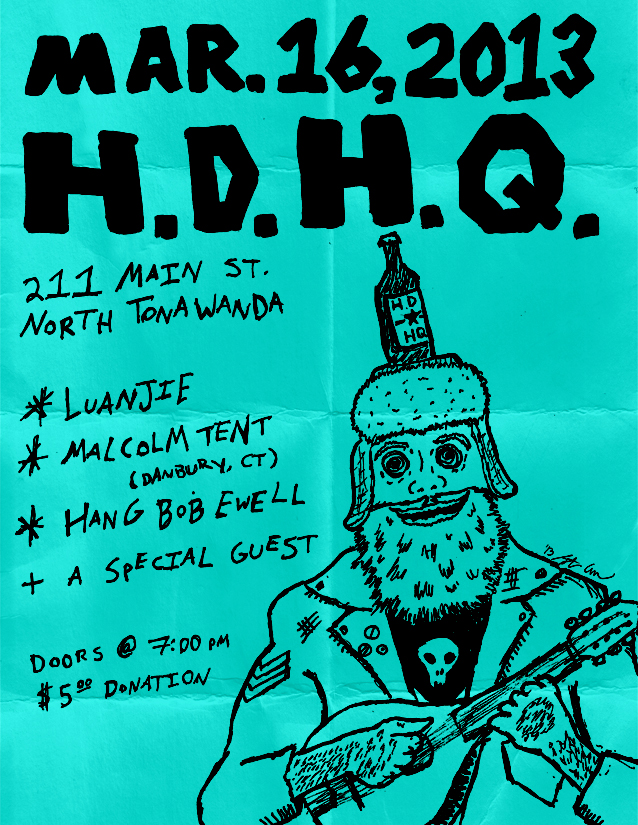 MAR. 16, 2013
H.D.H.Q.
211 MAIN ST.
NORTH TONAWANDA
* LUANJIE
* MALCOLM TENT
(DANBURY, CT)
* HANG BOB EWELL
+ A SPECIAL GUEST
DOORS @ 7:00 PM
$5.00 DONATION
HD
HQ
'13